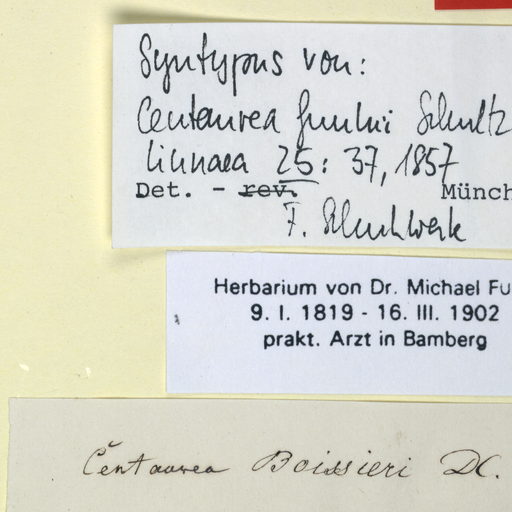 Syntypus von:
Centaurea funkii Schultz
Linnaea 25: 37, 1857
Det. - rev. Münch
F. Schuhwerk
Herbarium von Dr. Michael Fu
9. I. 1819 - 16. III. 1902
prakt. Arzt in Bamberg
Centaurea Boissieri DC.